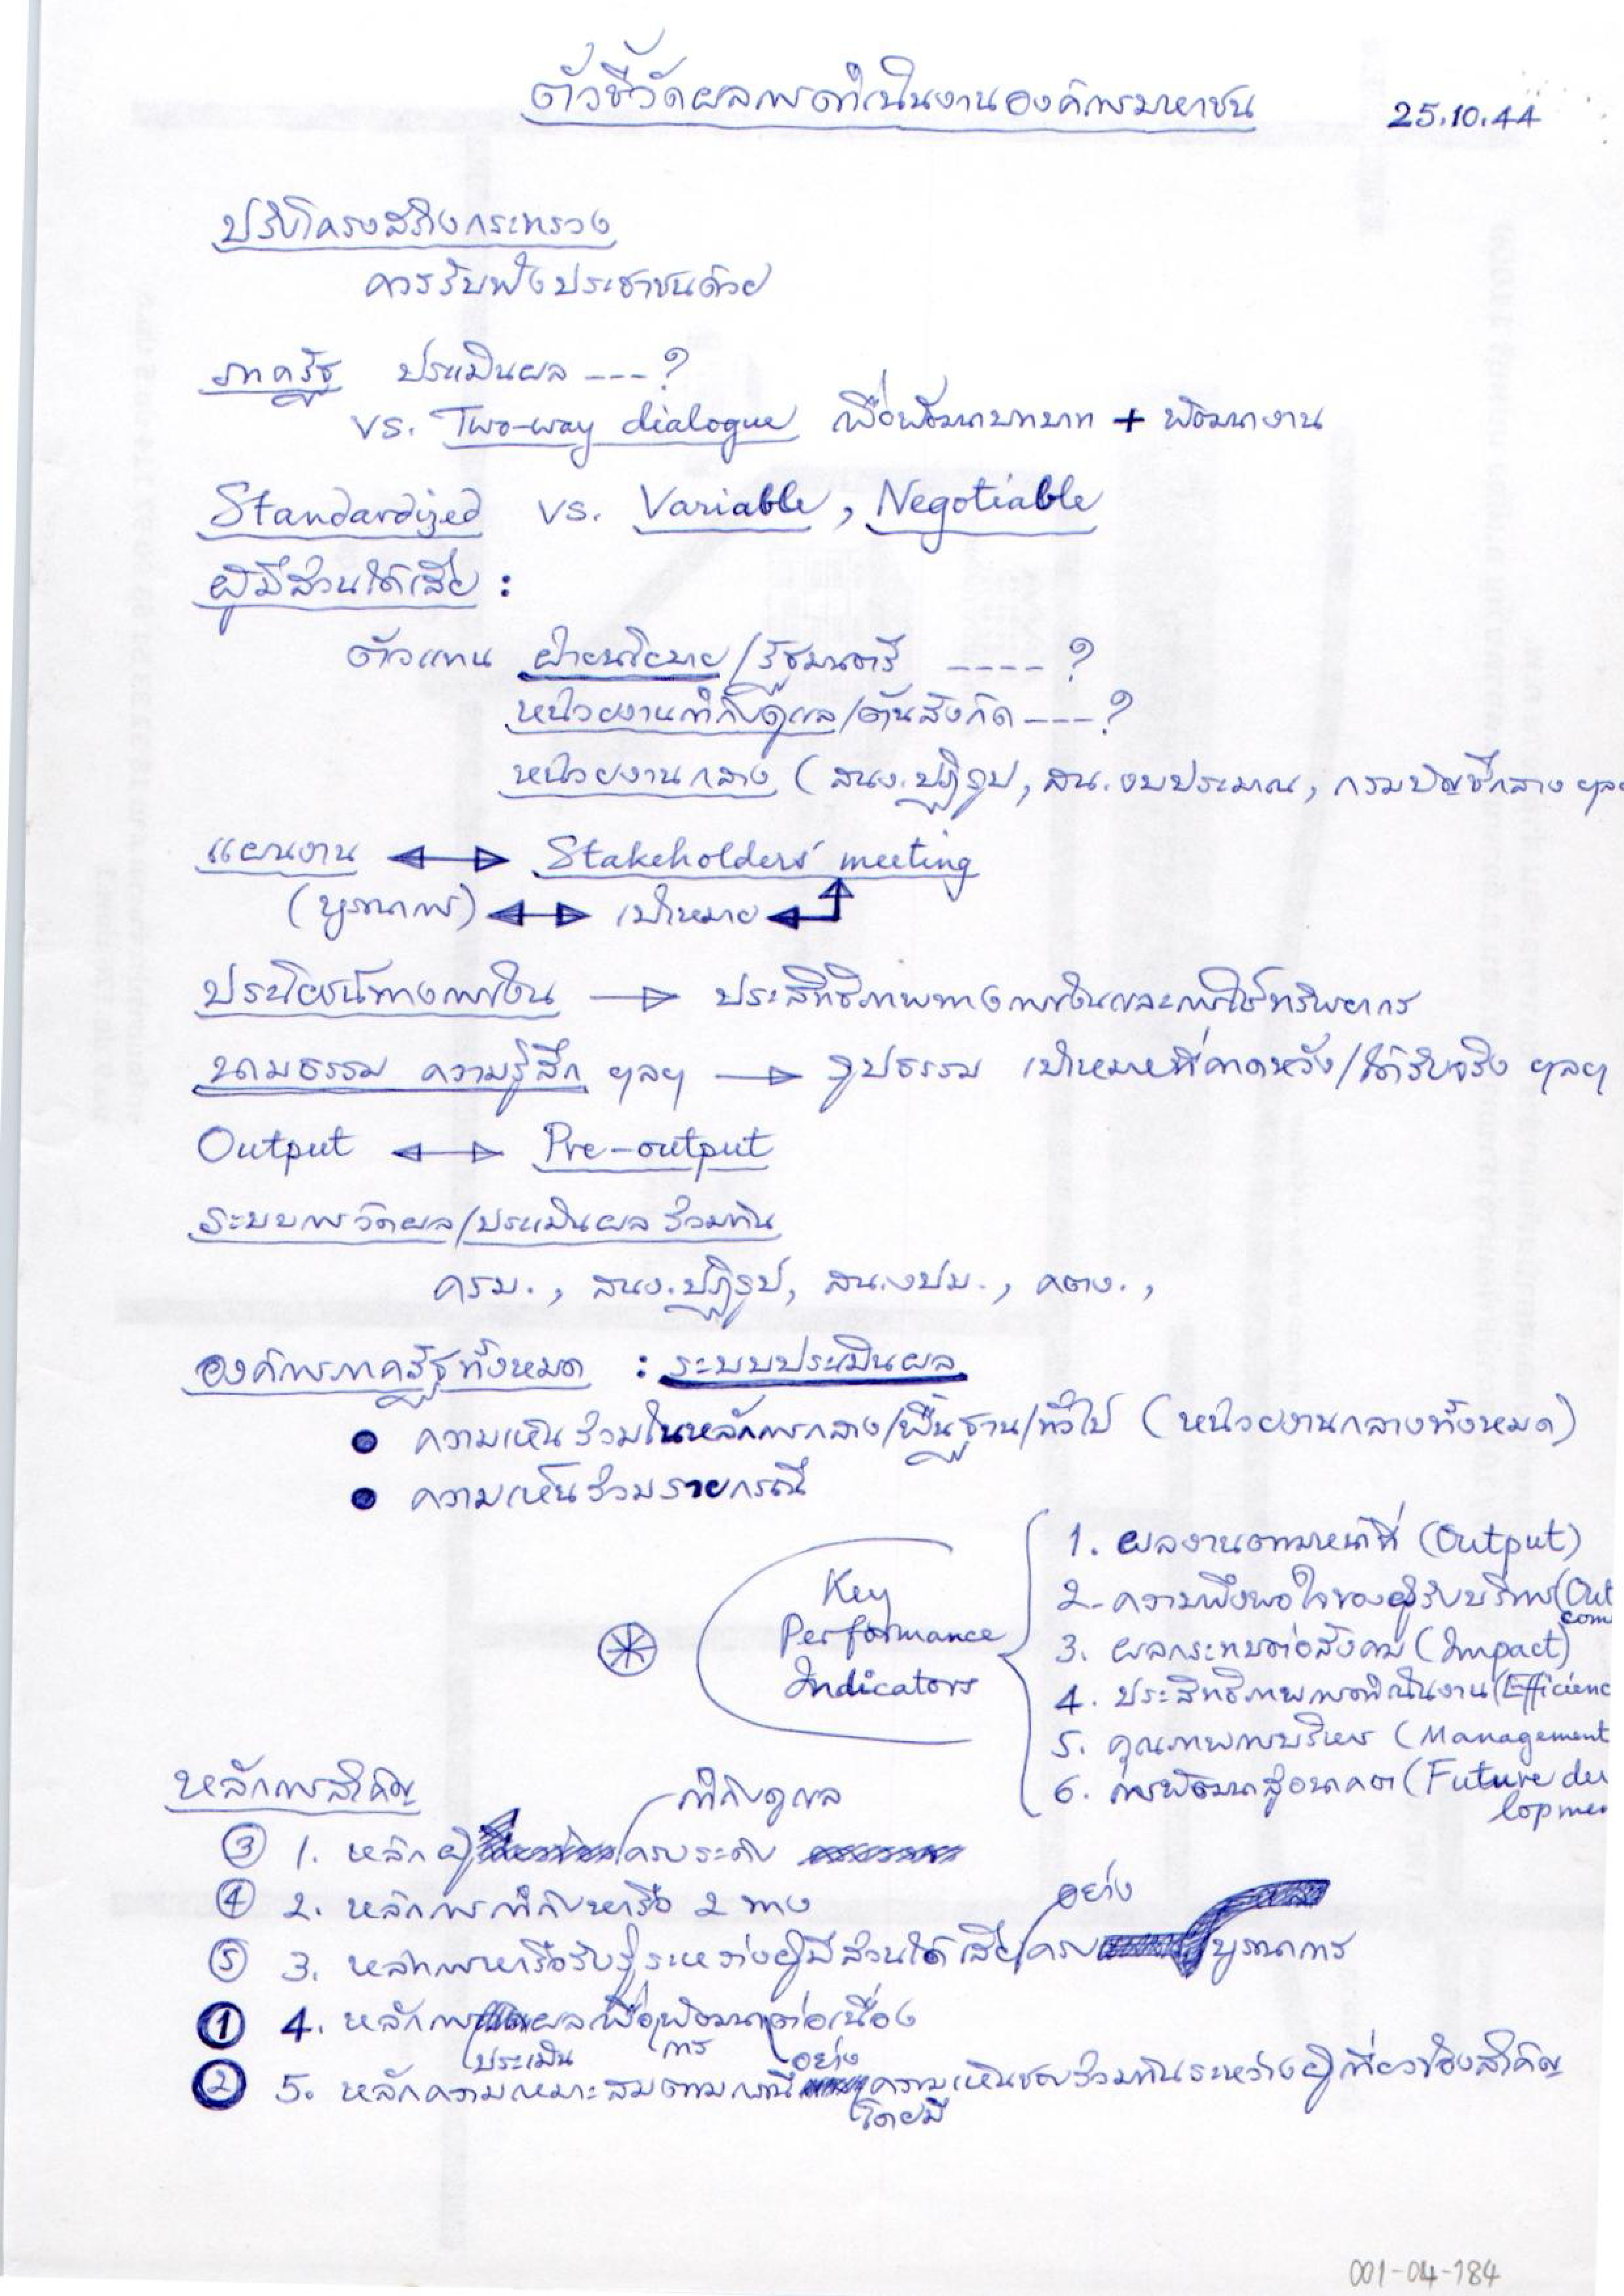 ตัวชี้วัดผลการดำเนินงานองค์การมหาชน 25.10.44
ปรับโครงสร้างกระทรวง
ควรรับฟังประชาชนด้วย
ภาครัฐ ประเมินผล ---?
vs. Two-way dialogue เพื่อพัฒนาบทบาท + พัฒนางาน
Standardized vs. Variable, Negotiable
ผู้มีส่วนได้เสีย :
ตัวแทน ฝ่ายนโยบาย/รัฐมนตรี ----?
หน่วยงานกำกับดูแล/ต้นสังกัด ---?
หน่วยงานกลาง (สนง.ปฏิรูป, สน.งบประมาณ, กรมบัญชีกลาง ฯล
แผนงาน ↔ Stakeholders' meeting
(บูรณาการ) ↔ เป้าหมาย
ประโยชน์ทางการเงิน → ประสิทธิภาพทางการเงินและการใช้ทรัพยากร
นามธรรม ความรู้สึก ฯลฯ → รูปธรรม เป้าหมายที่คาดหวัง/ได้รับจริง ฯลฯ
Output ↔ Pre-output
ระบบการวัดผล/ประเมินผลร่วมกัน
ครม., สนง.ปฏิรูป, สน.งปม., คตง.,
องค์การภาครัฐทั้งหมด : ระบบประเมินผล
● ความเห็นร่วมในหลักการกลาง/พื้นฐาน/ทั่วไป (หน่วยงานกลางทั้งหมด)
● ความเห็นร่วมรายกรณี
Key
Performance
Indicators
1. ผลงานตามหน้าที่ (Output)
2. ความพึงพอใจของผู้รับบริการ (Out
com
3. ผลกระทบต่อสังคม (Impact)
4. ประสิทธิภาพการดำเนินงาน (Efficienc
5. คุณภาพการบริหาร (Management
6. การพัฒนาสู่อนาคต (Future de
lopme
หลักการสำคัญ
กำกับดูแล
③ 1. หลัก ผู้ ครบระดับ
④ 2. หลักการกำกับหารือ 2 ทาง
อย่าง
⑤ 3. หลักการหารือรับรู้ระหว่างผู้มีส่วนได้เสีย ครบ บูรณาการ
① 4. หลักการ ผลเพื่อพัฒนาต่อเนื่อง
ประเมิน การ อย่าง
② 5. หลักความเหมาะสมตามกรณี ความเห็นชอบร่วมกันระหว่างผู้เกี่ยวข้องสำคัญ
โดยมี
001-04-184